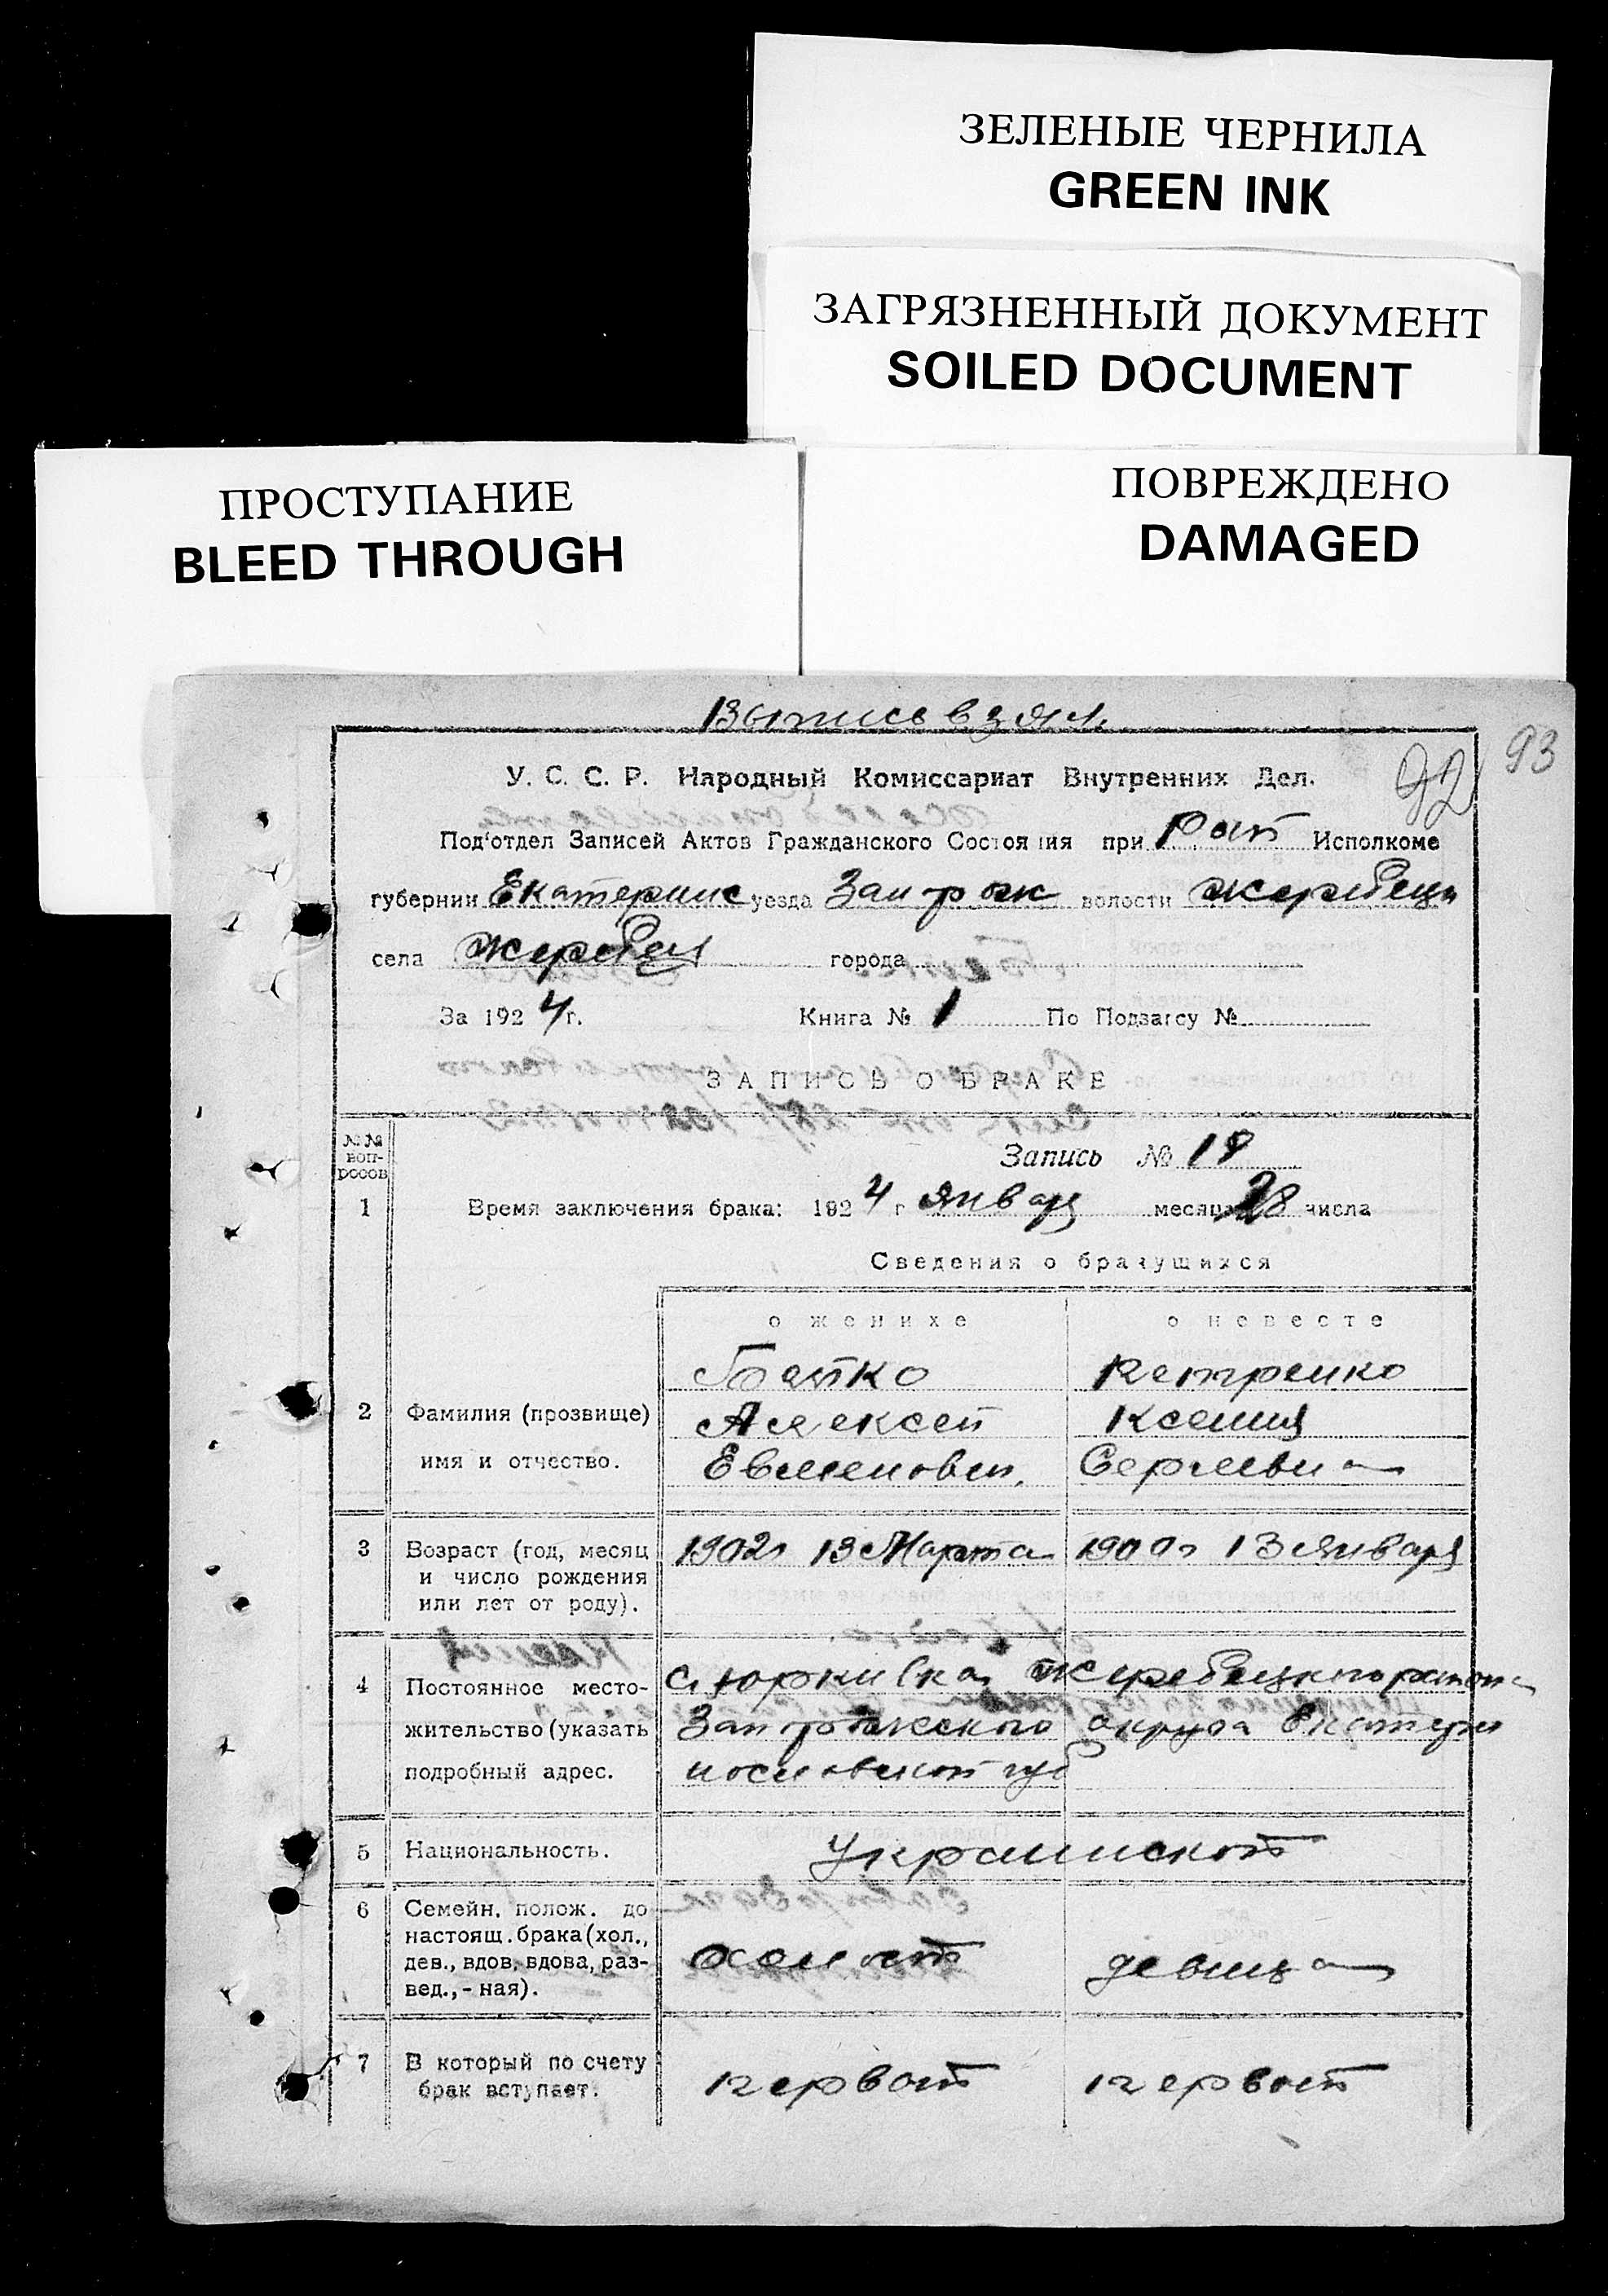 ЗЕЛЕНЫЕ ЧЕРНИЛА
GREEN INK
ЗАГРЯЗНЕННЫЙ ДОКУМЕНТ
SOILED DOCUMENT
ПРОСТУПАНИЕ
BLEED THROUGH
ПОВРЕЖДЕНО
DAMAGED
Выпись взял
93
92
У. С. С. Р. Народный Комиссариат Внутренних Дел.
Под'отдел Записей Актов Гражданского Состояния при Рай Исполкоме
губернии Екатеринс уезда Запорож волости Жеребецк
села Жеребец города
За 1924 г. Книга № 1 По Подзагсу №
ЗАПИСЬ О БРАКЕ
№№ воп-
росов
Запись № 18
1 Время заключения брака: 1924 г Январ месяца 28 числа
Сведения о брачущихся
о женихе о невесте
Бойко Петренко
2 Фамилия (прозвище) Алексей Ксения
имя и отчество. Евменови. Сергиевна
3 Возраст (год, месяц 1902г 13 Марта 1900г 13 Января
и число рождения
или лет от роду).
4 Постоянное место- с Юркивка Жеребецкого района
жительство (указать Запорожского округа Екатери
подробный адрес. нославской губ
5 Национальность. Украинской
6 Семейн. полож. до
настоящ. брака (хол.,
дев., вдов, вдова, раз- холост девица
вед., - ная).
7 В который по счету
брак вступает. первой первой